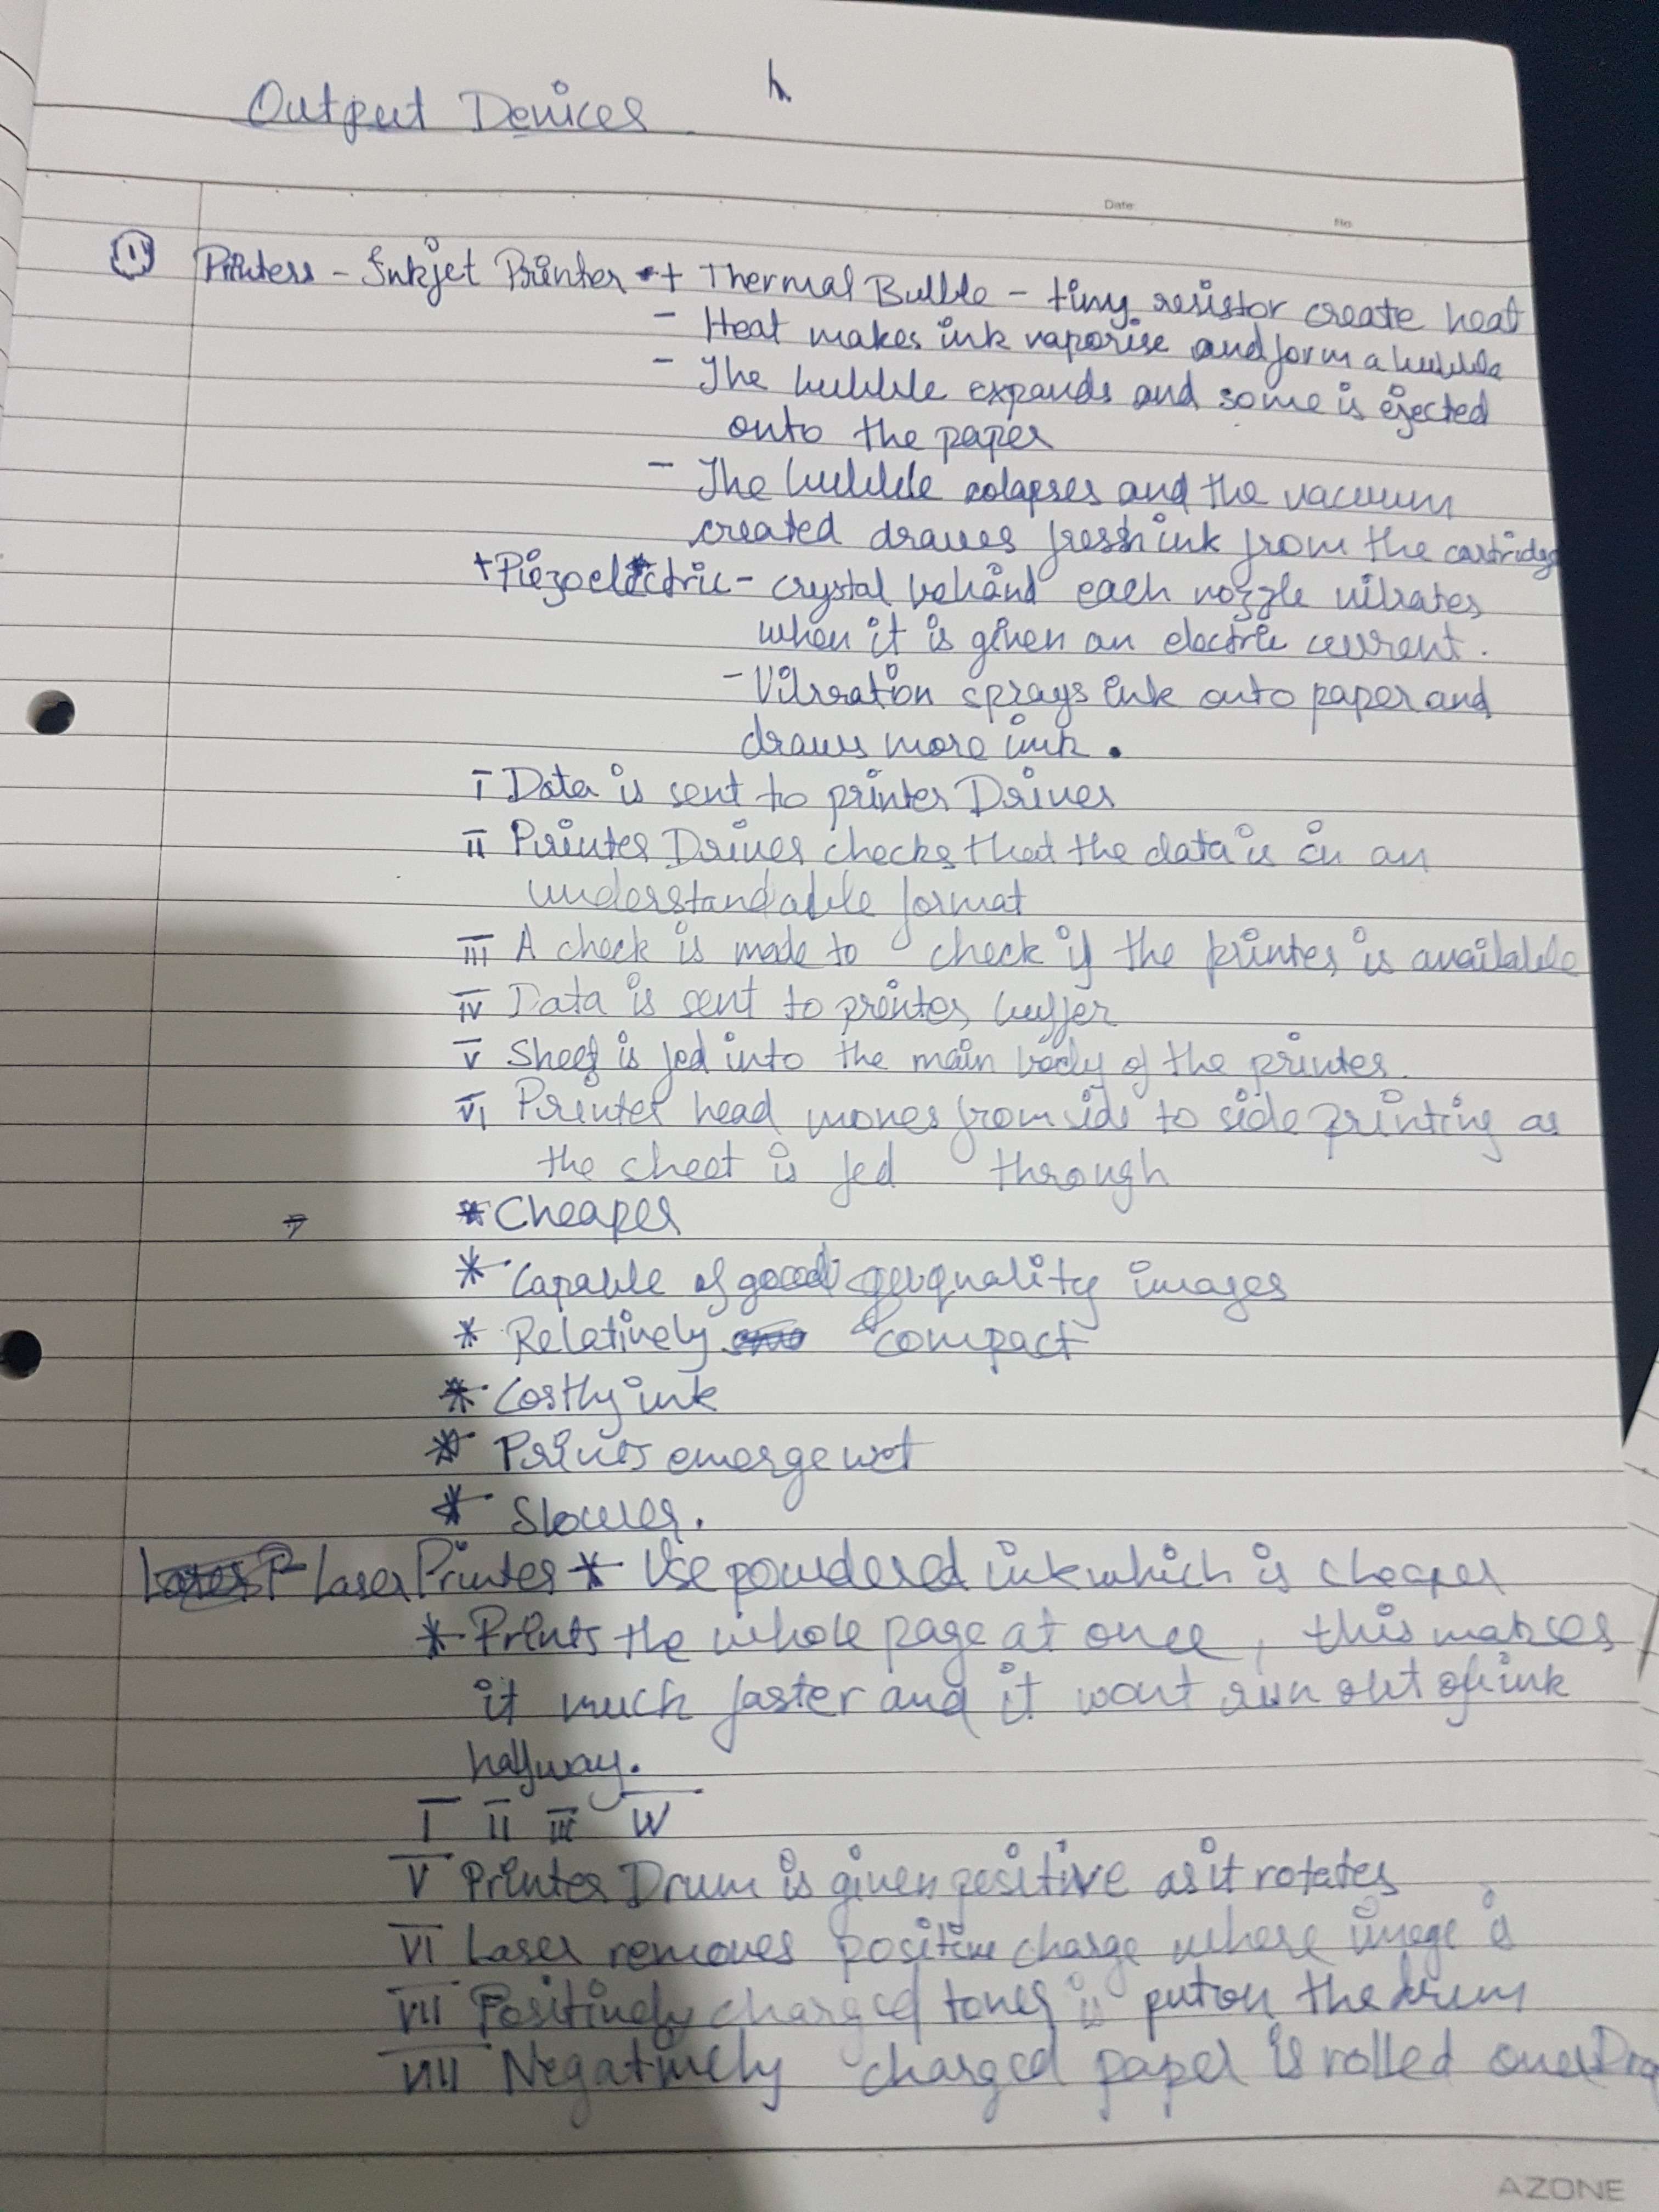 Output Devices
Date:
No.
1) Printers - Inkjet Printer + Thermal Bubble - tiny resistor create heat
- Heat makes ink vaporise and form a bubble
- The bubble expands and some is ejected
onto the paper
- The bubble colapses and the vacuum
created draws fressh ink from the cartridge
+ Piezoelectric - crystal behind each nozzle vibrates
when it is given an electric current.
- Vibration sprays ink onto paper and
draws more ink.
I Data is sent to printer Driver
II Printer Driver checks that the data is in an
understandable format
III A check is made to check if the printer is available
IV Data is sent to printer buffer
V Sheet is fed into the main body of the printer
VI Printer head moves from side to side printing as
the sheet is fed through
* Cheaper
* Capable of good quality images
* Relatively compact
* Costly ink
* Prints emerge wet
* Slower.
Laser Printer * Use powdered ink which is cheaper
* Prints the whole page at once, this makes
it much faster and it wont run out of ink
halfway.
I II III IV
V Printer Drum is given positive as it rotates
VI Laser removes positive charge where image is
VII Positively charged toner is put on the drum
VIII Negatively charged paper is rolled over
AZONE